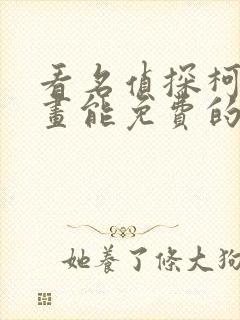 看名偵探柯
畫能免費的
她養了條大狗